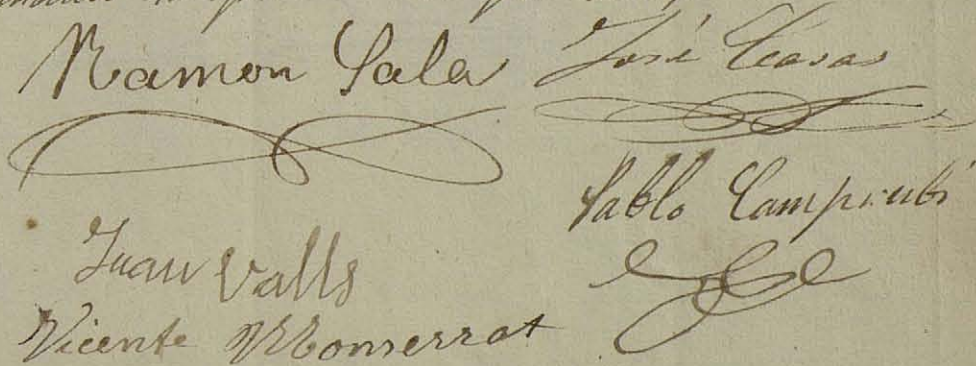 Ramon Sala
José Casas
Pablo Camprubí
Juan Valls
Vicente Monserrat